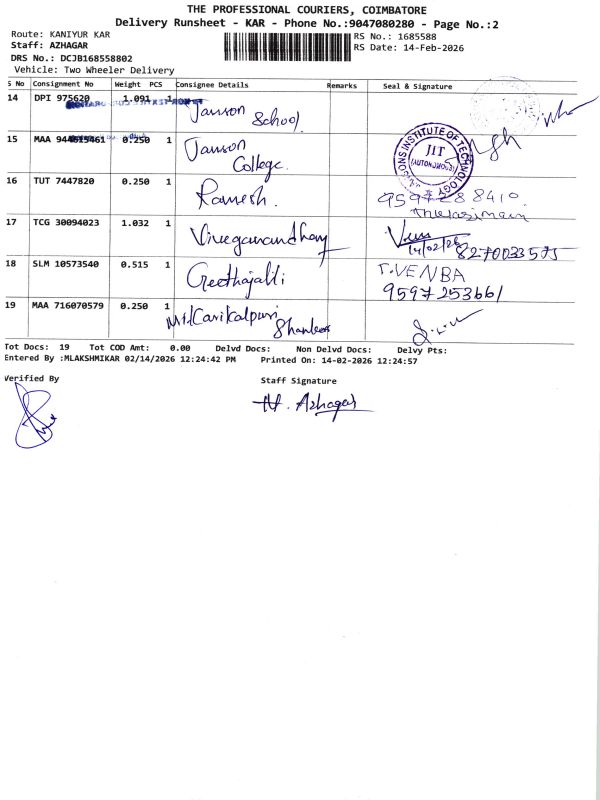 THE PROFESSIONAL COURIERS, COIMBATORE
Delivery Runsheet - KAR - Phone No.:9047080280 - Page No.:2
Route: KANIYUR KAR
RS No.: 1685588
Staff: AZHAGAR
RS Date: 14-Feb-2026
DRS No.: DCJB168558802
Vehicle: Two Wheeler Delivery
S No Consignment No Weight PCS Consignee Details Remarks Seal & Signature
14 DPI 975620 1.091 1 Janson School
15 MAA 944615461 0.250 1 Janson College
JANSONS INSTITUTE OF TECHNOLOGY JIT (AUTONOMOUS)
16 TUT 7447820 0.250 1 Ramesh. 9597288410
17 TCG 30094023 1.032 1 14/02/26 8270033575
18 SLM 10573540 0.515 1 Geethajalli T.VENBA
9597253661
19 MAA 716070579 0.250 1
Tot Docs: 19 Tot COD Amt: 0.00 Delvd Docs: Non Delvd Docs: Delvy Pts:
Entered By :MLAKSHMIKAR 02/14/2026 12:24:42 PM Printed On: 14-02-2026 12:24:57
Verified By Staff Signature
H. Azhagar